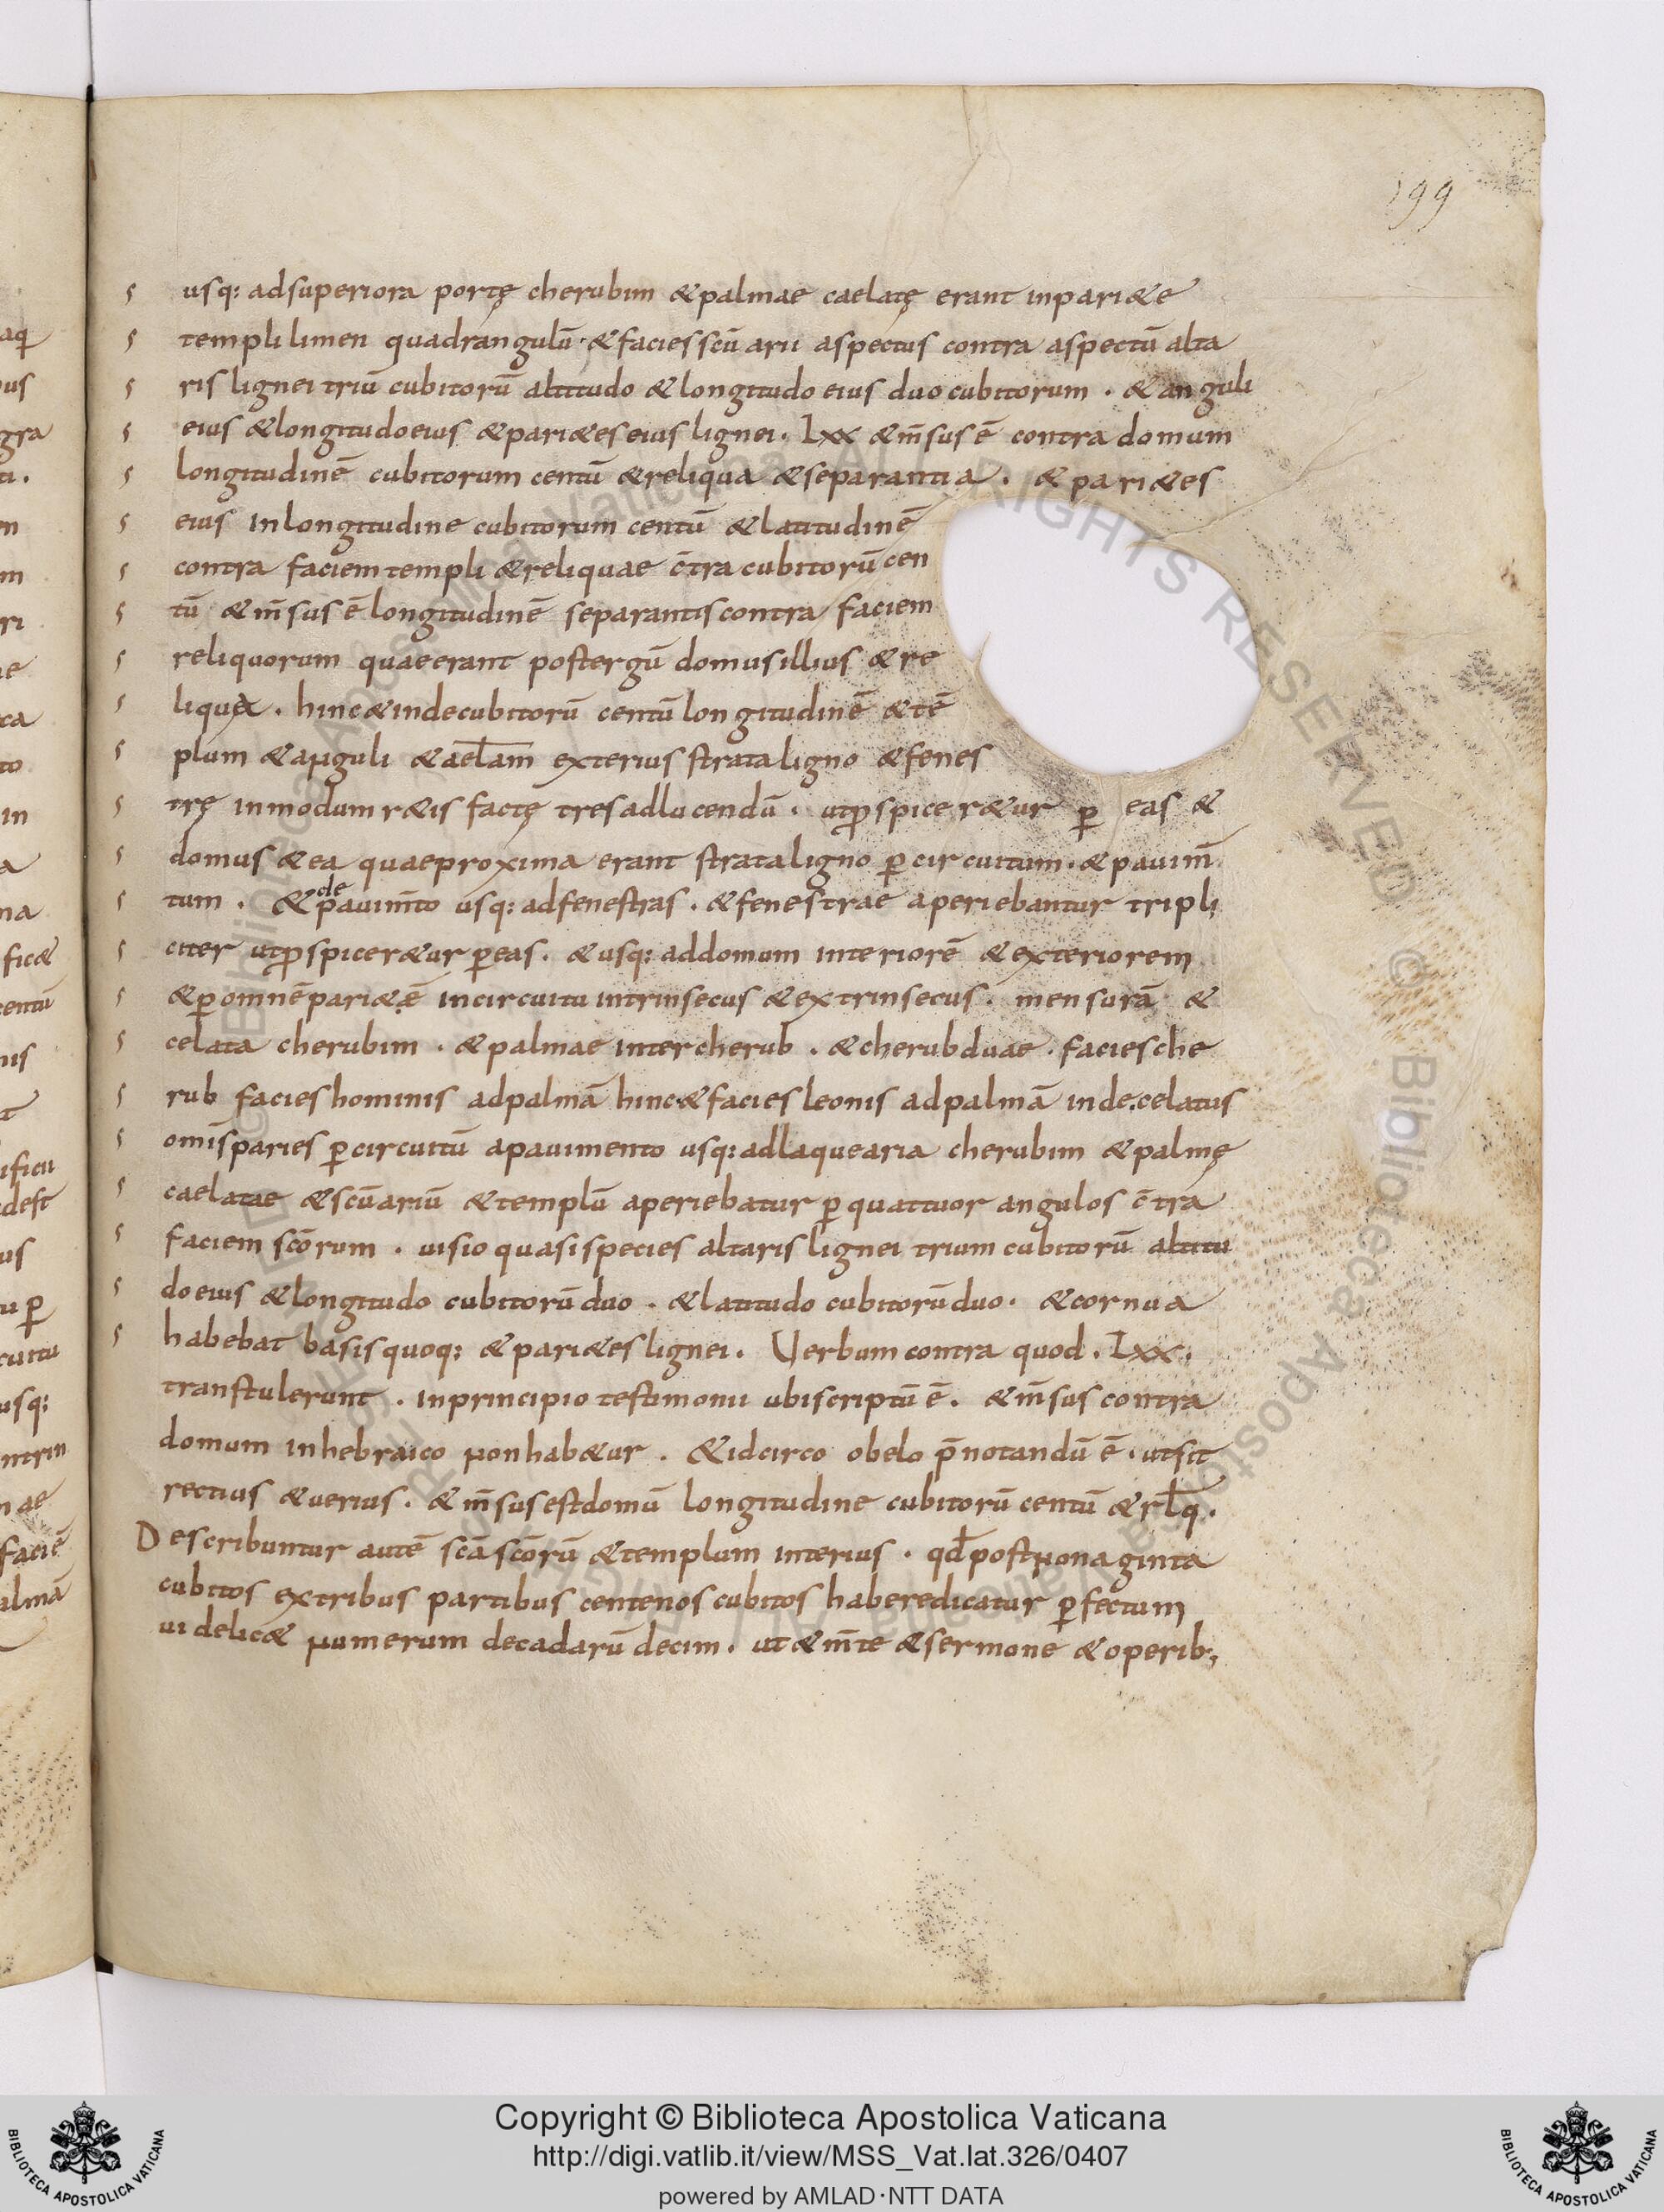 199
usq: adsuperiora portę cherubim &palmae caelatę erant inpari&e
templi limen quadrangulū · &faciesscūarii aspectus contra aspectū alta
ris lignei triū cubitorū altitudo &longitudo eius duo cubitorum . &anguli
eius &longitudoeius &pari&eseius lignei . Lxx &m̄susē contra domum
longitudinē cubitorum centū &reliqua &separantia . &pari&es
eius inlongitudine cubitorum centū &latitudinē
contra faciem templi &reliquae c̄tra cubitorū cen
tū &m̄susē longitudinē separantis contra faciem
reliquorum quaeerant postergū domus illius &re
liqua . hinc&indecubitorū centū longitudinē &tē
plum &anguli &aelam exterius strataligno &fenes
trę inmodumr&is factę tresadlucendū . utp̱spicer&ur ꝑ eas &
domus &ea quaeproxima erant strataligno ꝑcircuitum . &pauim̄
tum . &de pauim̄to usq: adfenestras . &fenestrae aperiebantur tripli
citer utp̱spicer&ur ꝑeas . &usq: addomum interiorē &exteriorem
&ꝑomnēpari&ē incircuitu intrinsecus &extrinsecus . mensurā &
celata cherubim . &palmae intercherub . &cherubduae . faciesche
rub facieshominis adpalmā hinc&facies leonis adpalmā inde.celatus
omīsparies ꝑcircuitū apauimento usq:adlaquearia cherubim &palmę
caelatae &scūariū &templū aperiebatur ꝑ quattuor angulos c̄tra
faciem scōrum . uisio quasi species altaris lignei trium cubitorū altitu
doeius &longitudo cubitorū duo . &latitudo cubitorū duo . &cornua
habebat basisquoq: &pari&es lignei . Verbum contra quod . Lxx .
transtulerunt . inprincipio testimonii ubiscriptū ē . &m̄sus contra
domum inhebraico nonhab&ur . &idcirco obelo p̄notandū ē . utsit
rectius &uerius . &m̄susestdomū longitudine cubitorū centū &rlq̄ .
Describuntur autē scā scōrū &templum interius . qd̄ postnonaginta
cubitos extribus partibus centenos cubitos haberedicatur ꝑfectum
uidelic& numerum decadarū decim . ut&m̄te &sermone &operib;
Copyright © Biblioteca Apostolica Vaticana
http://digi.vatlib.it/view/MSS_Vat.lat.326/0407
powered by AMLAD·NTT DATA